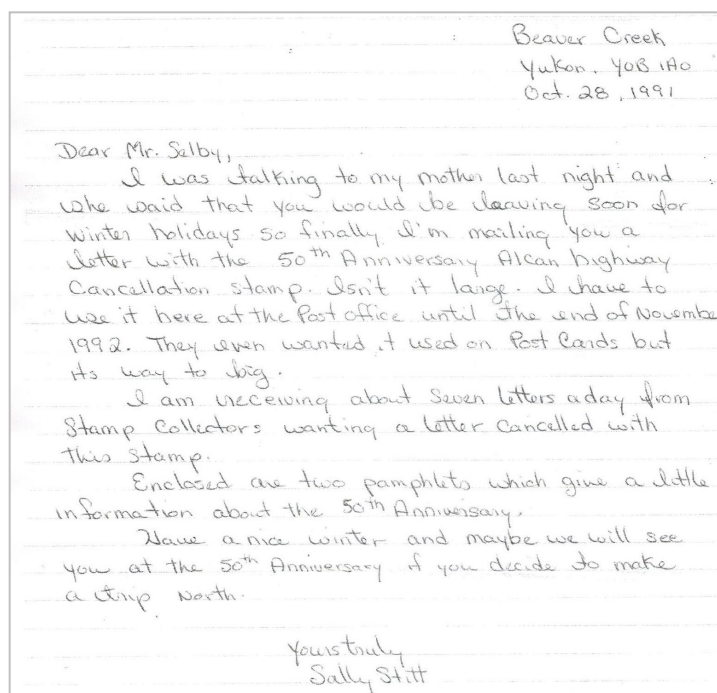 Beaver Creek
Yukon, Y0B 1A0
Oct. 28, 1991
Dear Mr. Selby,
I was talking to my mother last night and
she said that you would be leaving soon for
winter holidays so finally I'm mailing you a
letter with the 50th Anniversary Alcan highway
Cancellation stamp. Isn't it large. I have to
use it here at the Post office until the end of Novembe
1992. They even wanted it used on Post Cards but
its way to big.
I am receiving about Seven letters a day from
Stamp Collectors wanting a letter Cancelled with
this stamp.
Enclosed are two pamphlets which give a little
information about the 50th Anniversary.
Have a nice winter and maybe we will see
you at the 50th Anniversary if you decide to make
a trip North.
Yours truly
Sally Stitt